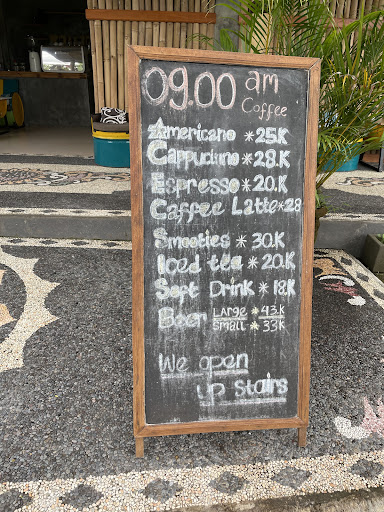 09.00 am
Coffee
Americano *25.K
Cappuciino *28.K
Espresso *20.K
Caffee Latte *28
Smooties * 30.K
Iced tea * 20.K
Sopt Drink * 18.K
Beer Large * 43.K
Small * 33K
We open
up stairs